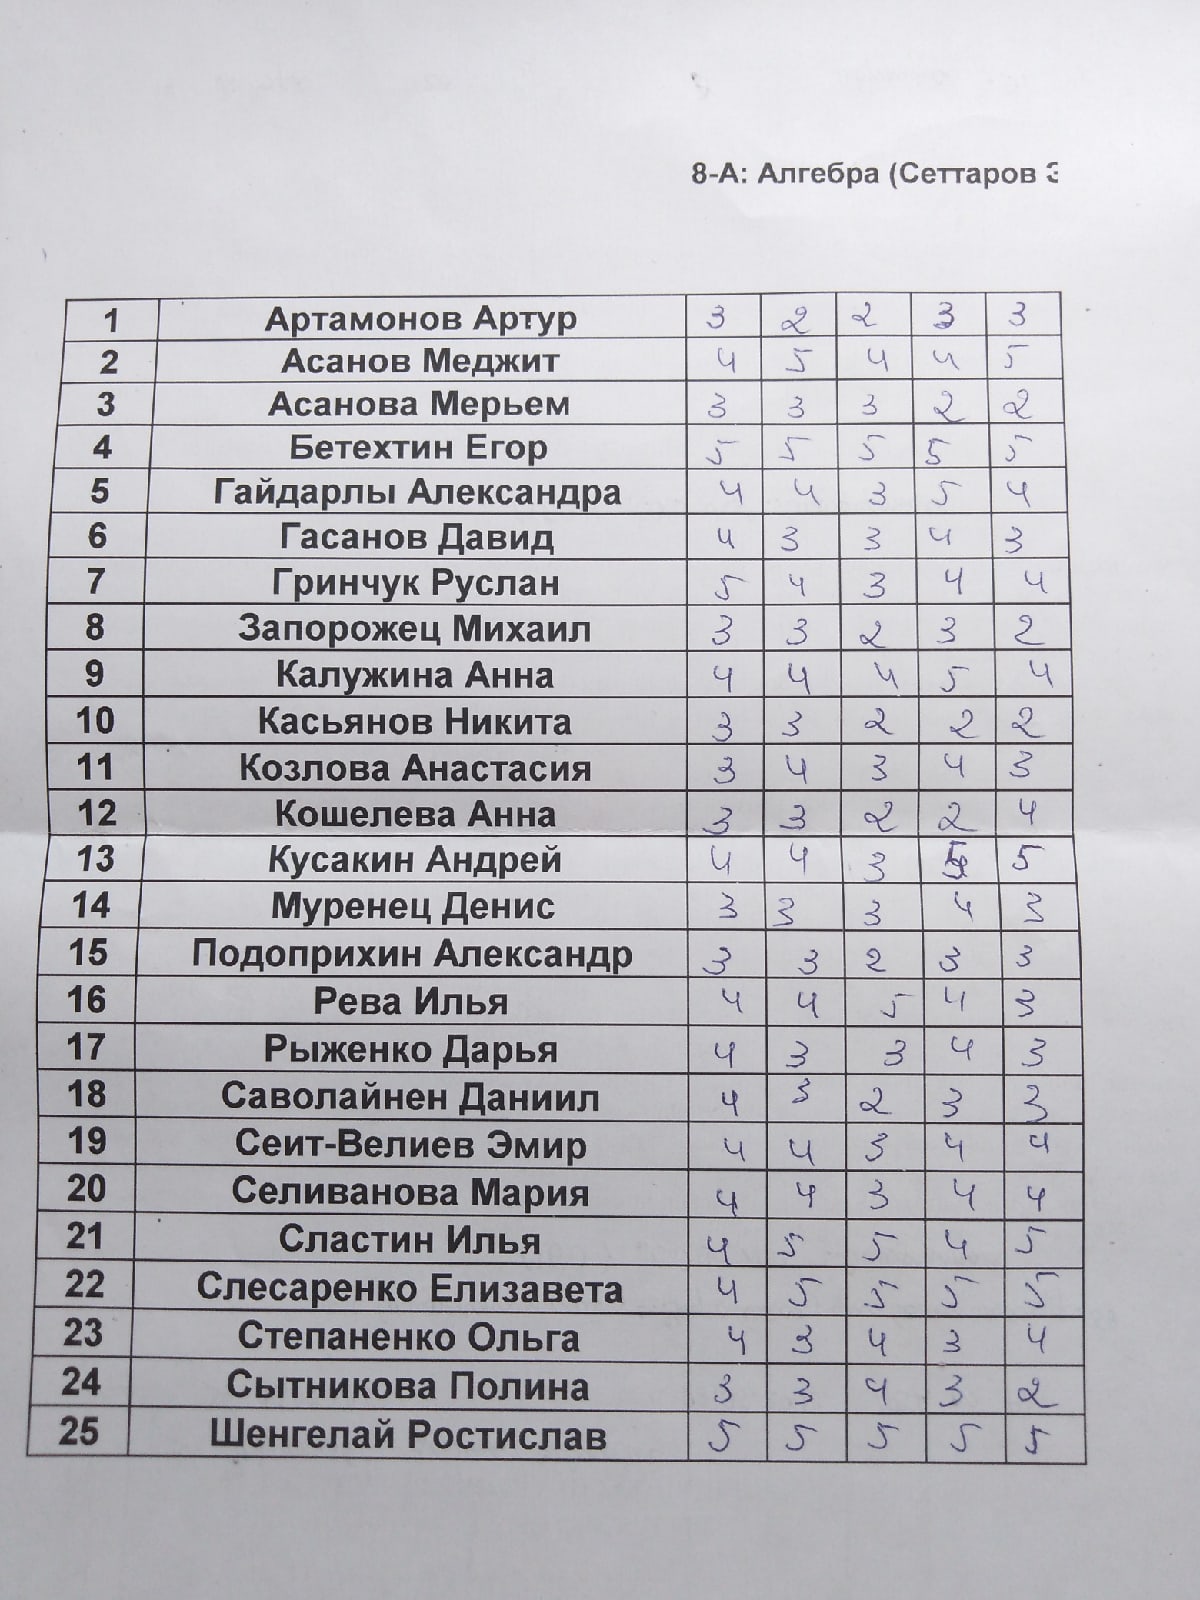 8-А: Алгебра (Сеттаров Э
1 Артамонов Артур 3 2 2 3 3
2 Асанов Меджит 4 5 4 4 5
3 Асанова Мерьем 3 3 3 2 2
4 Бетехтин Егор 5 5 5 5 5
5 Гайдарлы Александра 4 4 3 5 4
6 Гасанов Давид 4 3 3 4 3
7 Гринчук Руслан 5 4 3 4 4
8 Запорожец Михаил 3 3 2 3 2
9 Калужина Анна 4 4 4 5 4
10 Касьянов Никита 3 3 2 2 2
11 Козлова Анастасия 3 4 3 4 3
12 Кошелева Анна 3 3 2 2 4
13 Кусакин Андрей 4 4 3 5 5
14 Муренец Денис 3 3 3 4 3
15 Подоприхин Александр 3 3 2 3 3
16 Рева Илья 4 4 5 4 3
17 Рыженко Дарья 4 3 3 4 3
18 Саволайнен Даниил 4 3 2 3 3
19 Сеит-Велиев Эмир 4 4 3 4 4
20 Селиванова Мария 4 4 3 4 4
21 Сластин Илья 4 5 5 4 5
22 Слесаренко Елизавета 4 5 5 5 5
23 Степаненко Ольга 4 3 4 3 4
24 Сытникова Полина 3 3 4 3 2
25 Шенгелай Ростислав 5 5 5 5 5